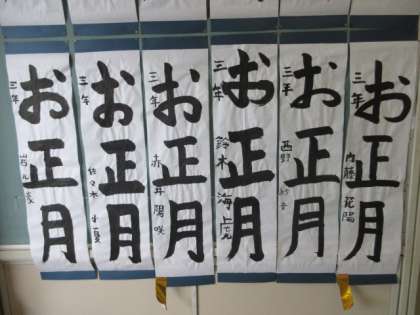 お正月
三年 内藤 花陽
お正月
三年 西野
お正月
三年 鈴木 海虎
お正月
三年 赤井 陽咲
お正月
三年 佐々木 優
お正月
三年